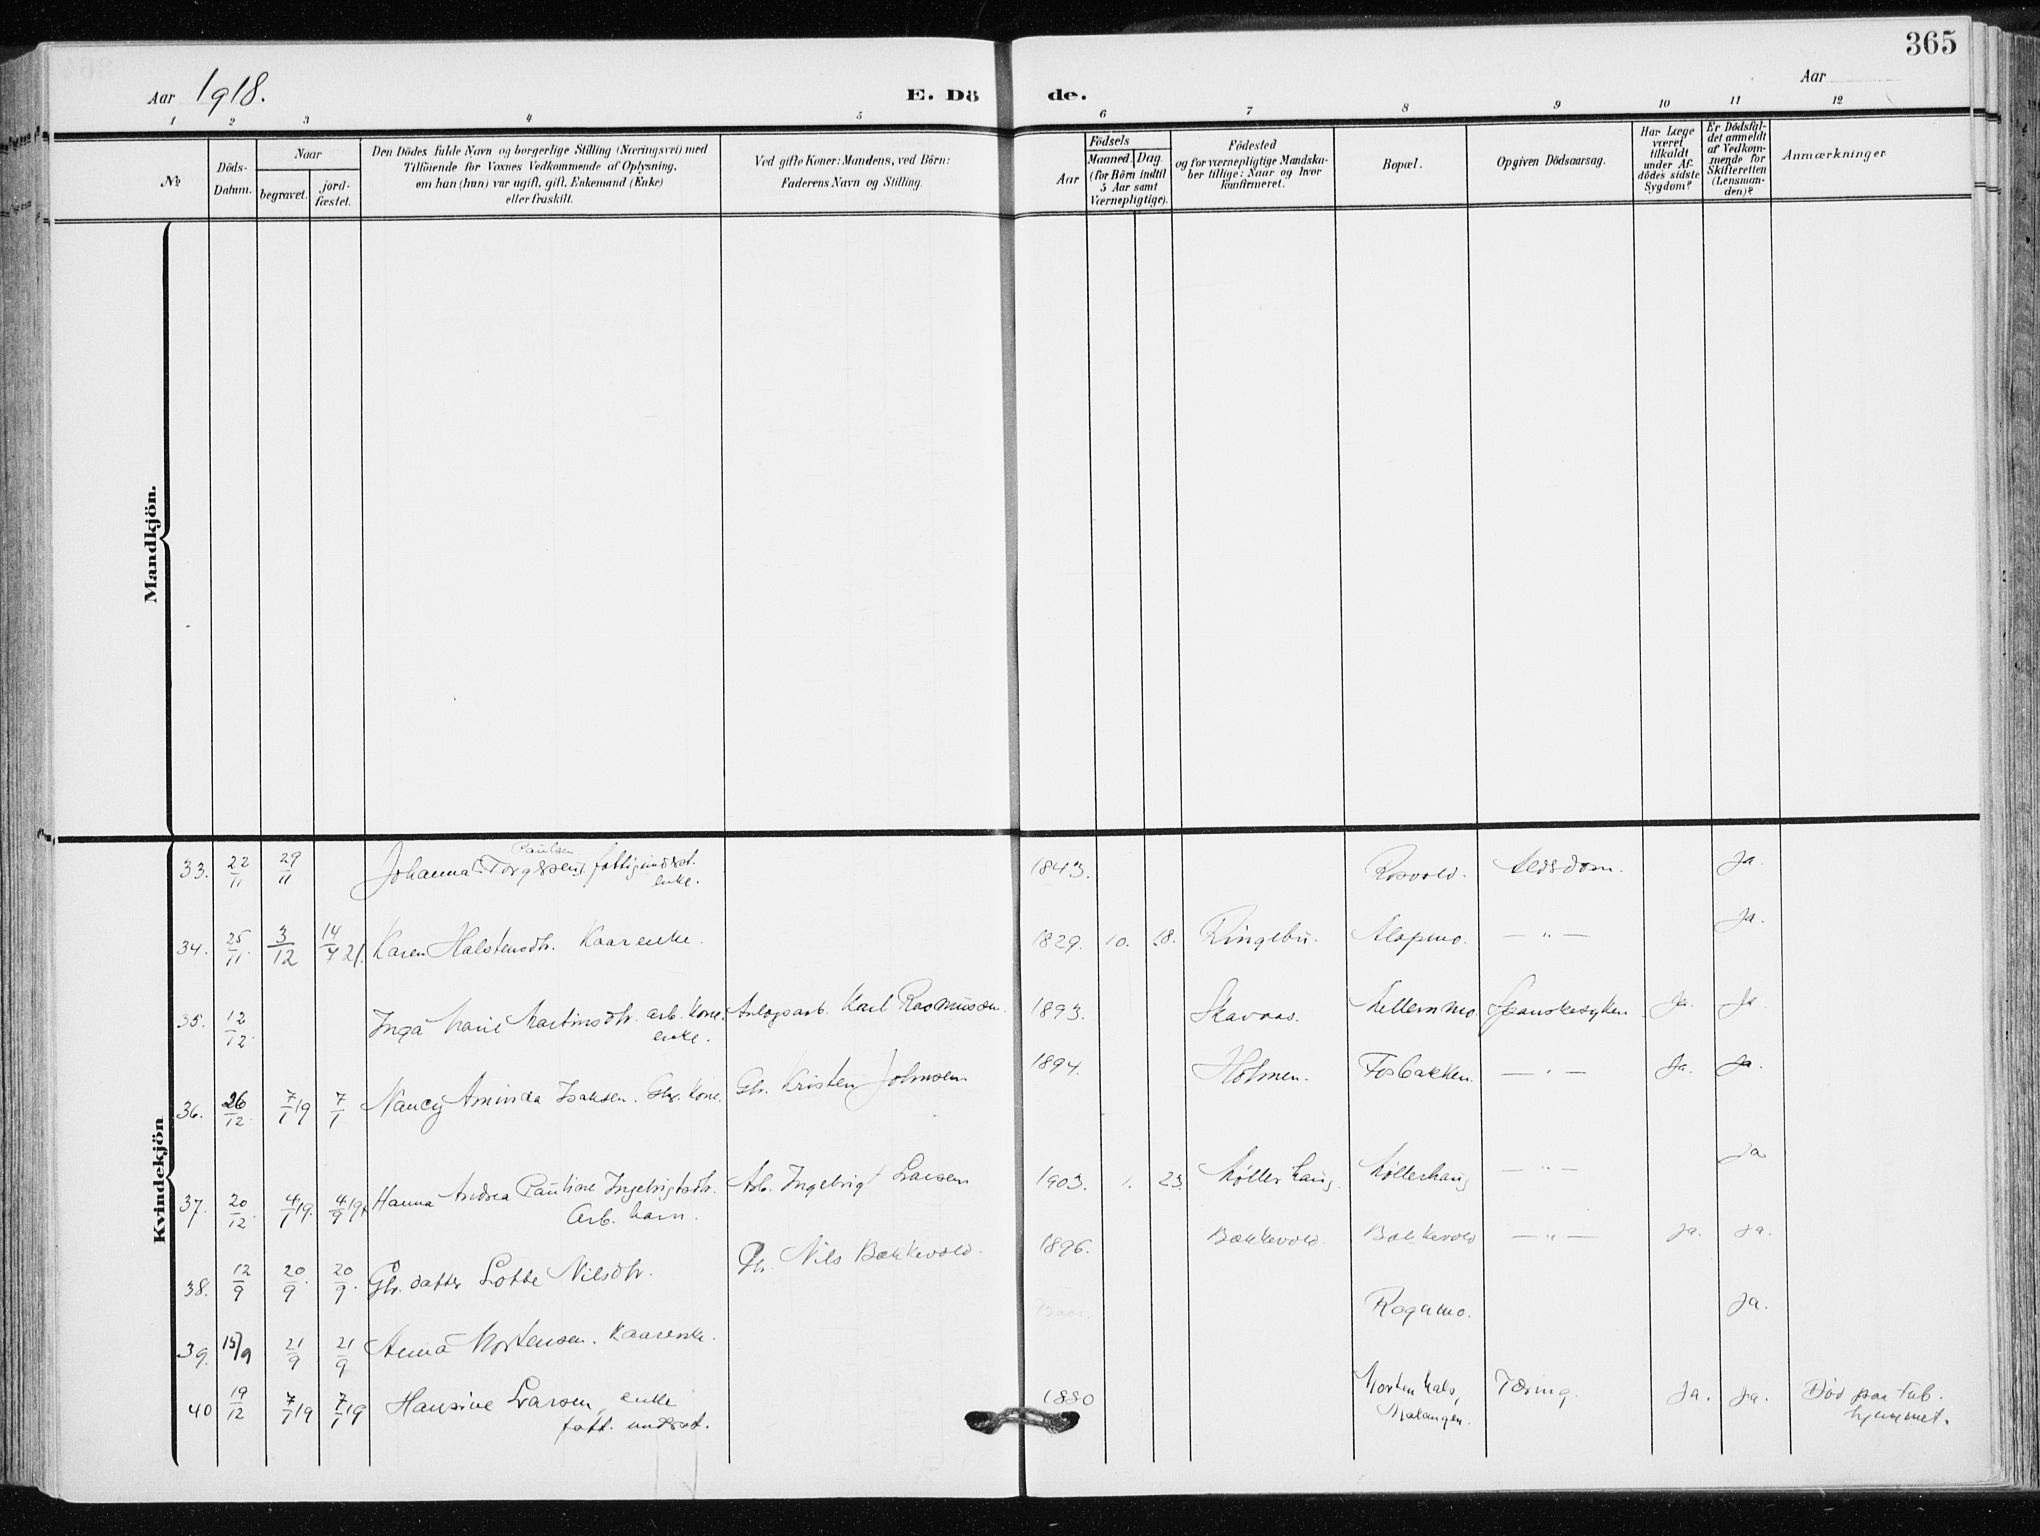 365
Aar 1918.
E. Dö de.
Aar
1 2 3 4 5 6 7 8 9 10 11 12
No
Döds-
Datum.
Naar
begravet.
jord-
fæstet.
Den Dödes fulde Navn og borgerlige Stilling (Næringsvei) med
Tilföiende for Voxnes Vedkommende af Oplysning,
om han (hun) var ugift, gift, Enkemand (Enke)
eller fraskilt.
Ved gifte Koner: Mandens, ved Börn:
Faderens Navn og Stilling.
Aar
Födsels
Maaned. Dag
(for Börn indtil
5 Aar samt
Værnepligtige).
Födested
og for værnepligtige Mandska-
ber tillige: Naar og hvor
konfirmeret.
Bopæl.
Opgiven Dödsaarsag.
Har Læge
været
tilkaldt
under Af-
dödes sidste
Sygdom?
Er Dödsfal-
det anmeldt
af Vedkom-
mende for
Skifteretten
(Lensman-
den)?
Anmærkninger
Mandkjön.
Kvindekjön
33. 22/11 29/11 Johanna Torgersen fattigunderst. 1843. Rosvold. Aldsdom. Ja.
Paulsen
enke.
34. 25/11. 3/12 14/7 21. Karen Halstensdtr. Kaarenke. 1829. 10. 18. Ringebu. Alapmo. — " — Ja.
35. 12/12. Inga Marie Martinsdtr. arb. kone. Anlogsarb. Karl Rasmussen. 1893. Skavaas. Mellemmo. Spanskesyken Ja. Ja.
enke.
36. 26/12. 7/1 19 7/1 Nancy Aminda Isaksen. Gbr. kone. Gbr. Kristen Johnsen 1894. Holmen. Fosbakken. — " — Ja. Ja.
37. 20/12. 4/1 19. 4/9 19 Hanna Andrea Pauline Ingebrigtsdtr. Arb. Ingebrigt Larsen 1903. 1. 23. Møllerhaug. Møllerhaug — " — Ja
Arb. barn.
38. 12/9 20/9. 20/9. Gbr. datter Lotte Nilsdtr. Gbr. Nils Bakkevold. 1896. Bakkevold Bakkevold — " — Ja. Ja.
39. 15/9 21/9 21/9 Anna Mortensen. Kaarenke. Rognmo. Ja.
40 19/12 7/1 19 7/1 19 Hansine Larsen, enke 1880 Mortenhals, Tæring. Ja. Ja. Död paa Tub.
fatt. underst. Malangen. hjemmet.